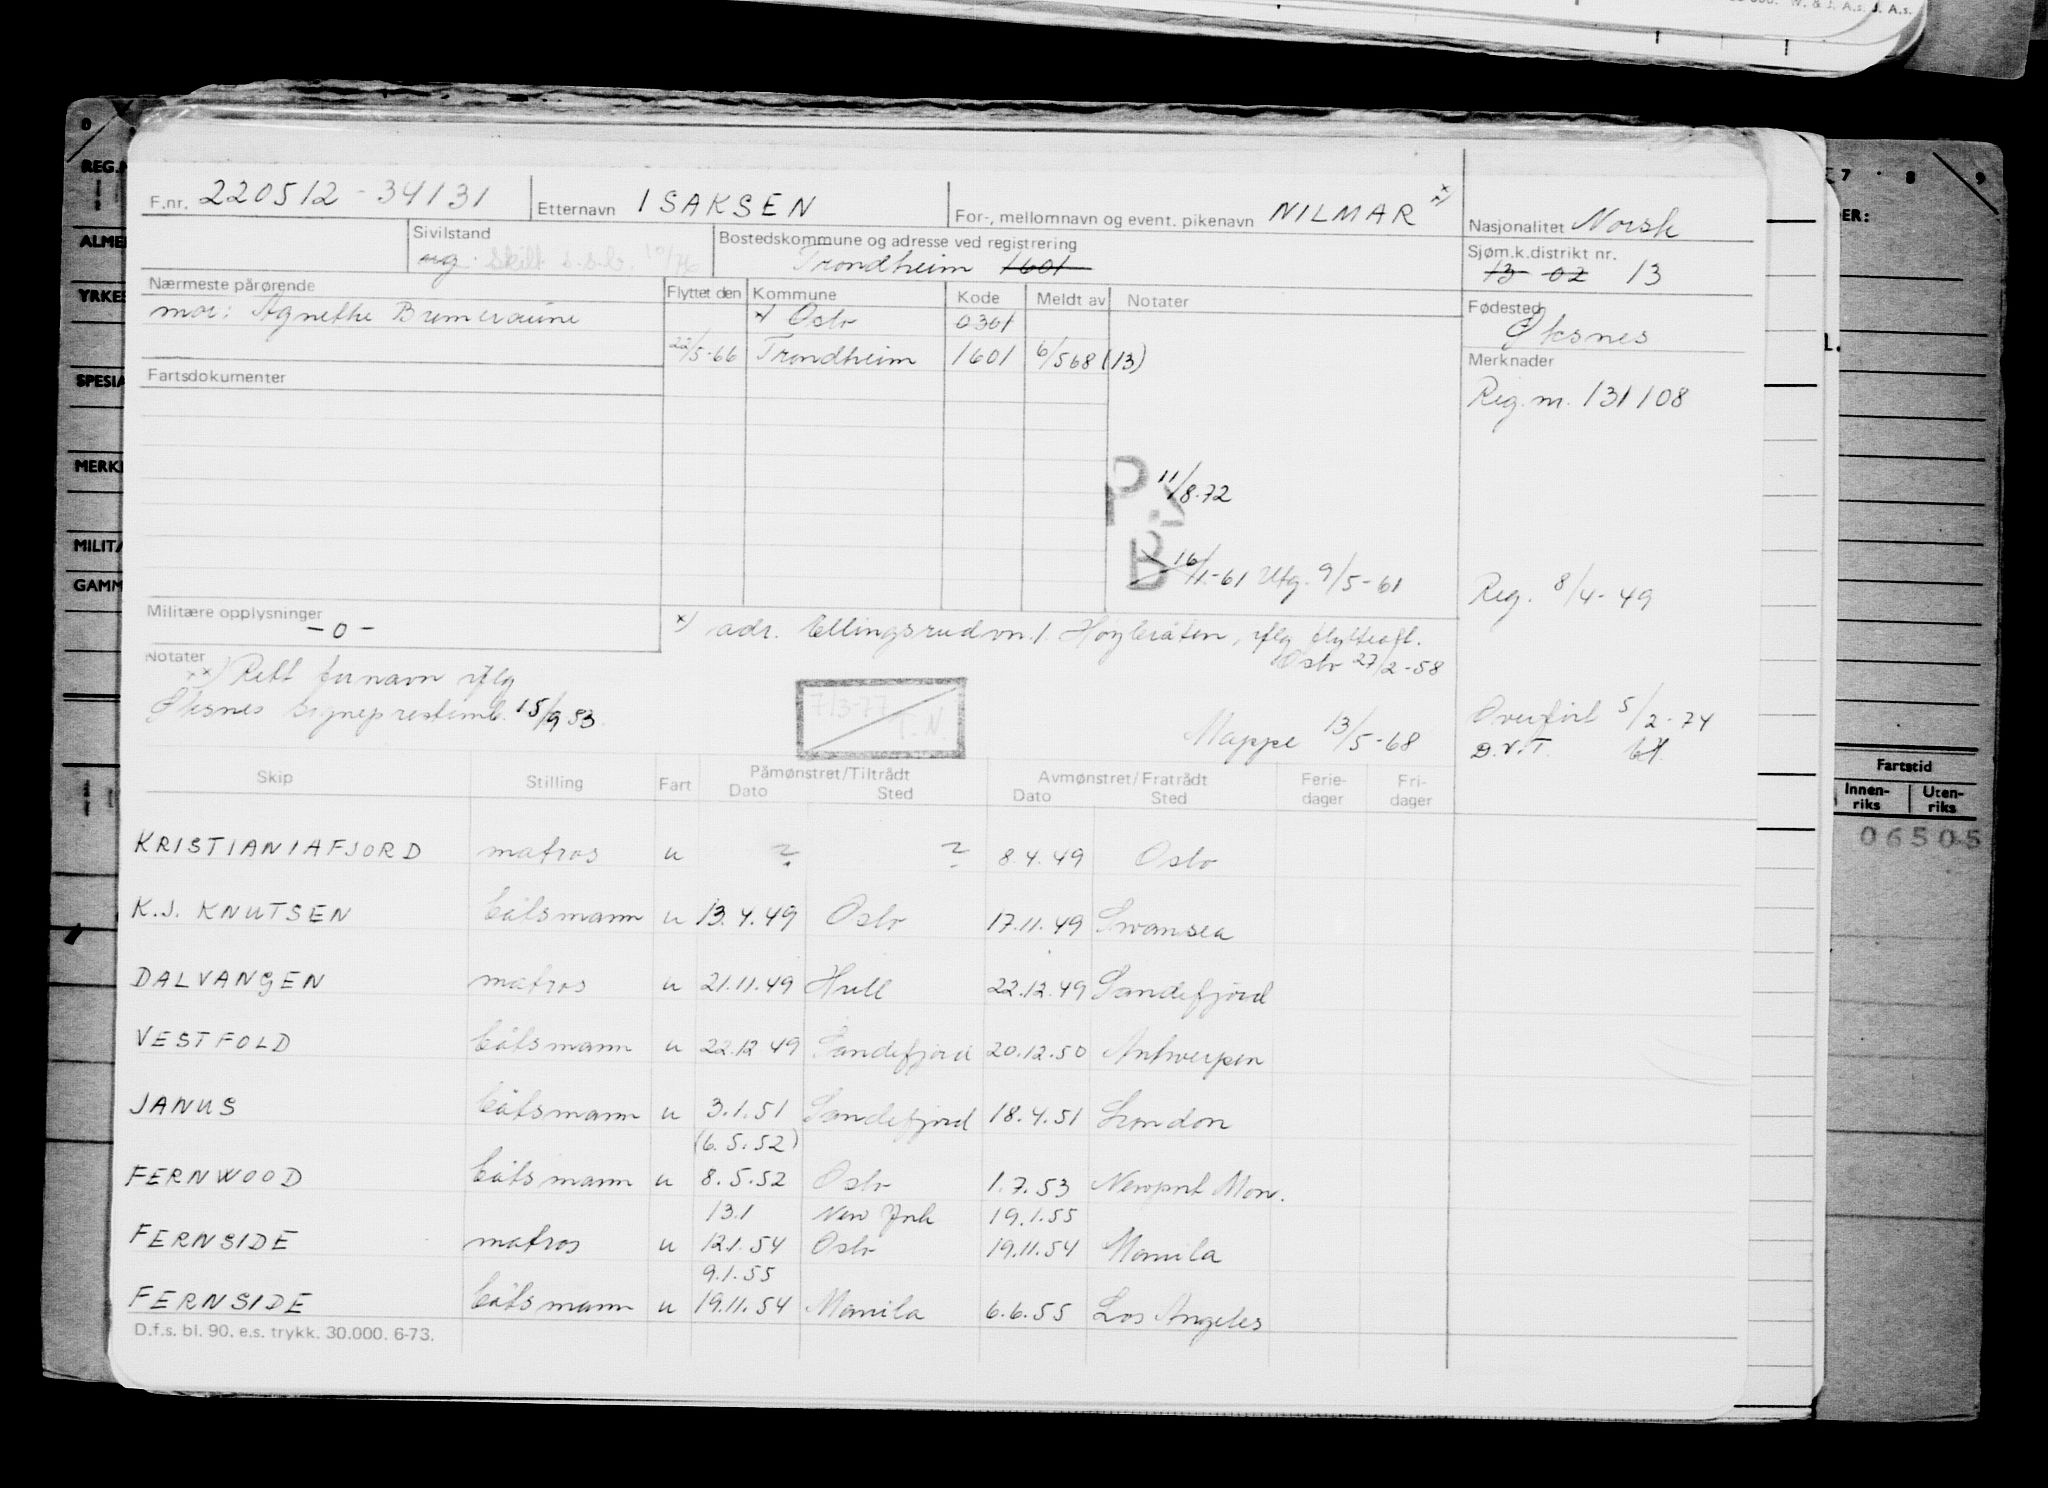 W. & J. A.s. J. A.s.
0 7 8 9
REG.N
F.nr. 220512-34131 Etternavn ISAKSEN For-, mellomnavn og event. pikenavn NILMAR xx) Nasjonalitet Norsk
ALME
Sivilstand ug. Skilt s.s.b. 10/76 Bostedskommune og adresse ved registrering Trondheim 1601 Sjøm.k.distrikt nr. 13 02 13
YRKES
Nærmeste pårørende Flyttet den Kommune Kode Meldt av Notater Fødested Øksnes
mor: Agnethe x) Oslo 0301
22/5-66 Trondheim 1601 6/568 (13) Merknader
SPESIA
Fartsdokumenter Reg.nr. 131108
MERK
P. 11/8.72
MILIT
B 16/1-61 Utg. 9/5-61
GAMM
Reg. 8/4-49
Militære opplysninger -0-
x) adr. Ellingsrudvn. 1 Høybråten, iflg flyttofl.
Oslo 27/2-58
Notater
xx) Rett fornavn iflg
Øksnes sogneprestemb. 15/9 53.
713-77 F.N.
Mappe 13/5-68
Overført 5/2-74
D.v.T.
Skip Stilling Fart Påmønstret/Tiltrådt Dato Sted Avmønstret/Fratrådt Dato Sted Ferie-dager Fri-dager
Fartstid
Innen-riks Uten-riks
06505
KRISTIANIAFJORD matros u ? ? 8.4.49 Oslo
K.J. KNUTSEN båtsmann u 13.4.49 Oslo 17.11.49 Swansea
DALVANGEN matros u 21.11.49 Hull 22.12.49 Sandefjord
VESTFOLD båtsmann u 22.12 49 Sandefjord 20.12.50 Antwerpen
JANUS båtsmann u 3.1.51 Sandefjord 18.4.51 London
(6.5.52)
FERNWOOD båtsmann u 8.5.52 Oslo 1.7.53 Newport Mon.
13.1 New York 19.1.55
FERNSIDE matros u 12.1.54 Oslo 19.11.54 Manila
9.1.55
FERNSIDE båtsmann u 19.11.54 Manila 6.6.55 Los Angeles
D.f.s. bl. 90. e.s. trykk. 30.000. 6-73.